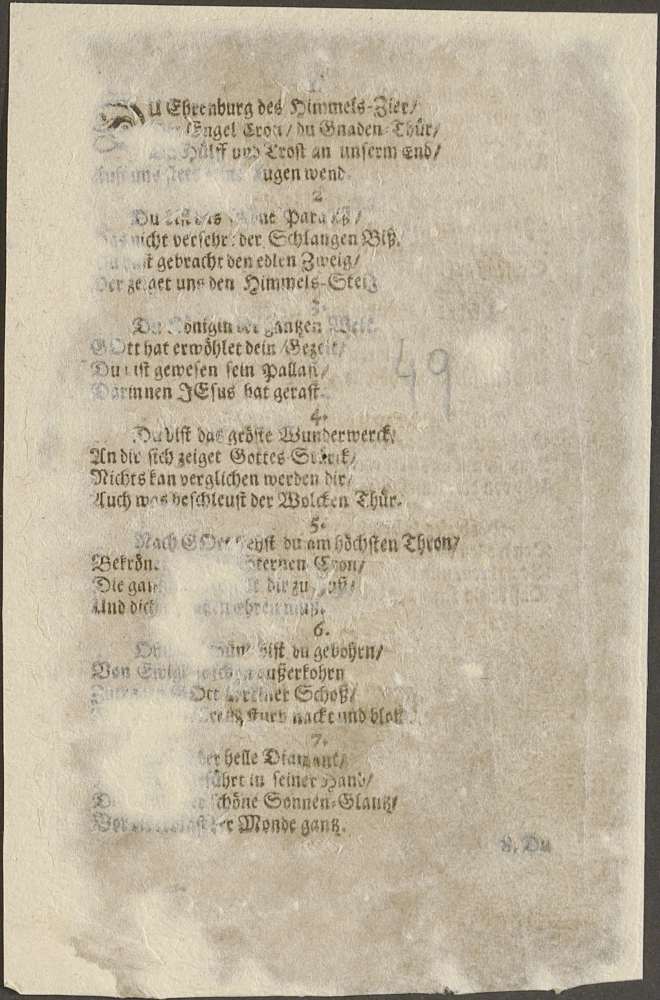 1.
DU Ehrenburg des Himmels-Zier/
Engel Cron/ du Gnaden-Thür/
Hülff und Trost an unserm End/
Augen wend.
2.
Du das Paradeiß/
nicht versehrt der Schlangen Biß.
gebracht den edlen Zweig/
Der zeiget uns den Himmels-Steig
3.
Du Königin der gantzen Welt.
GOtt hat erwöhlet dein Gezelt/
Du bist gewesen sein Pallast/
Darinnen JEsus hat gerast.
4.
Du bist das gröste Wunderwerck/
An dir sich zeiget Gottes Stärck/
Nichts kan verglichen werden dir/
Auch was beschleust der Wolcken Thür.
5.
Nach GOtt du am höchsten Thron/
Bekrönt Sternen Cron/
Die gantze dir zu Fuß/
Und dich ehren muß.
6.
Ohne Sünd bist du gebohrn/
Von Ewigkeit außerkohrn
GOtt Schoß/
starb nackt und bloß
7.
der helle Diamant/
führt in seiner Hand/
schöne Sonnen-Glantz/
der Monde gantz.
8. Du
49